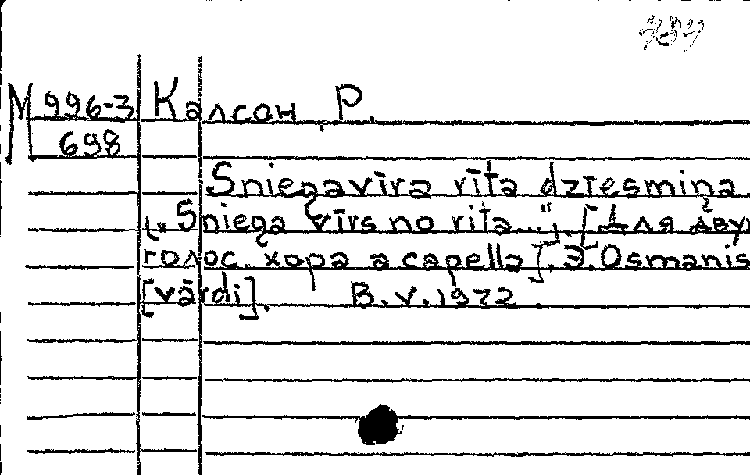 M 996-3 Калсон, Р.
698
Sniegavīra rīta dziesmiņa
[„Sniega vīrs no rīta..."]. [Для двух
голос. хора a capella]. J. Osmanis
[vārdi]. B.v. 1972.